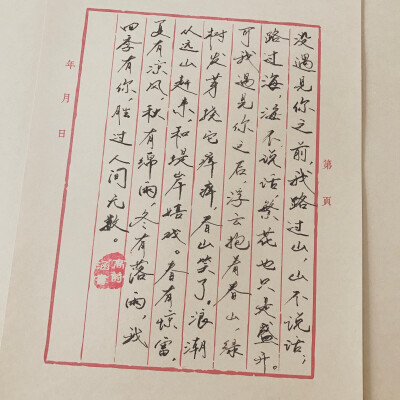 第 頁
没遇见你之前，我路过山，山不说话；
路过海，海不说话，繁花也只是盛开。
可我遇见你之后，浮云抱着春山，绿
树发芽挠它痒痒，春山笑了。浪潮
从远山赶来，和堤岸嬉戏。春有惊雷，
夏有凉风，秋有绵雨，冬有落雨，我
四季有你，胜过人间无数。
年 月 日